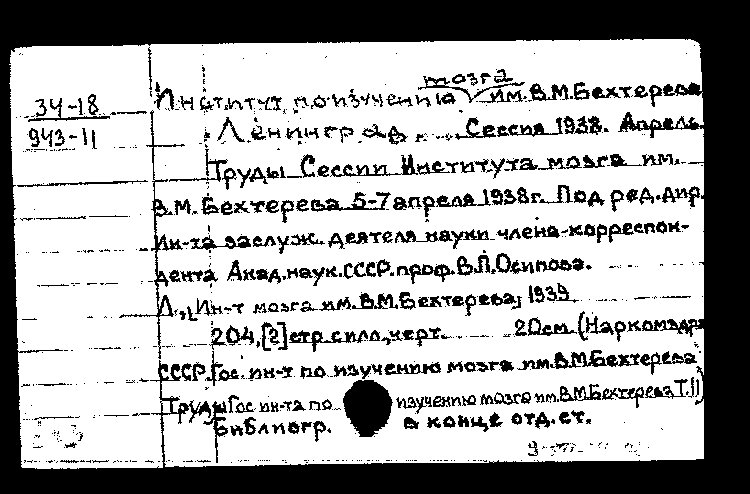 мозга
34-18 Институт по изучению им. В.М. Бехтерева
943-11 Ленинград Сессия 1938. Апрель.
Труды Сессии Института мозга им.
В.М. Бехтерева 5-7 апреля 1938г. Под ред. дир.
Ин-та заслуж. деятеля науки члена-корреспон-
дента Акад. наук. СССР. проф. В.П. Осипова.
Л., Ин-т мозга им. В.М. Бехтерева, 1939
204, [2] стр. с илл., черт. 20см. (Наркомздрав
СССР. Гос. ин-т по изучению мозга им. В.М. Бехтерева
Труды Гос ин-та по изучению мозга им. В.М. Бехтерева Т.11)
Библиогр. в конце отд. ст.